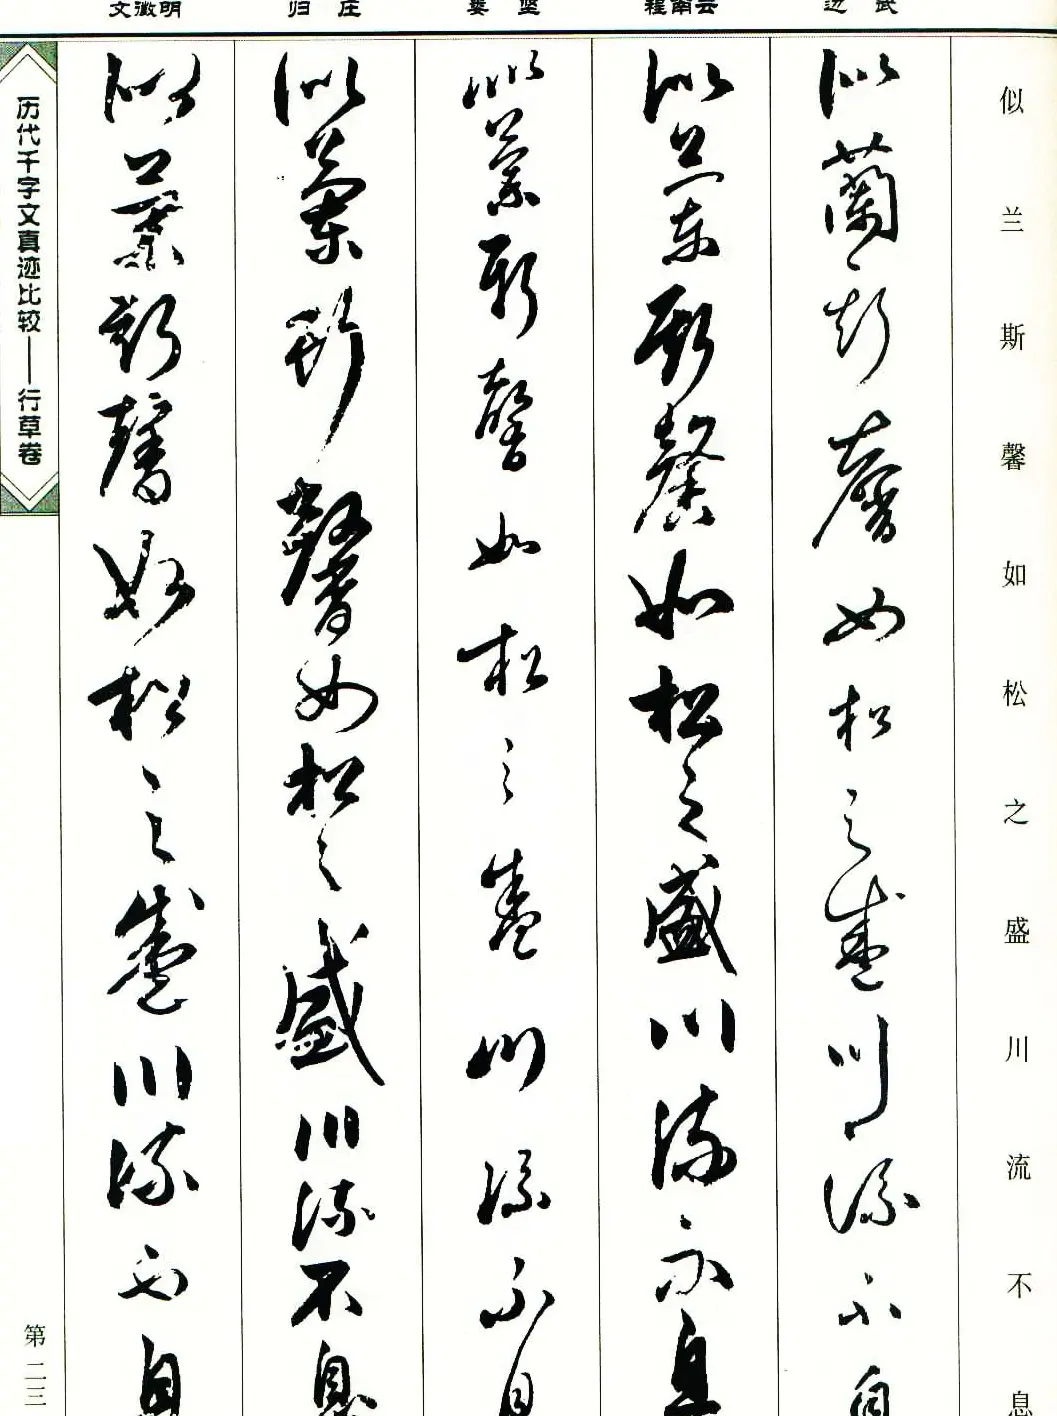 似兰斯馨如松之盛川流不息
似蘭斯馨如松之盛川流不息
似蘭斯馨如松之盛川流不息
似蘭斯馨如松之盛川流不息
似蘭斯馨如松之盛川流不息
似蘭斯馨如松之盛川流不息
历代千字文真迹比较——行草卷
第二三